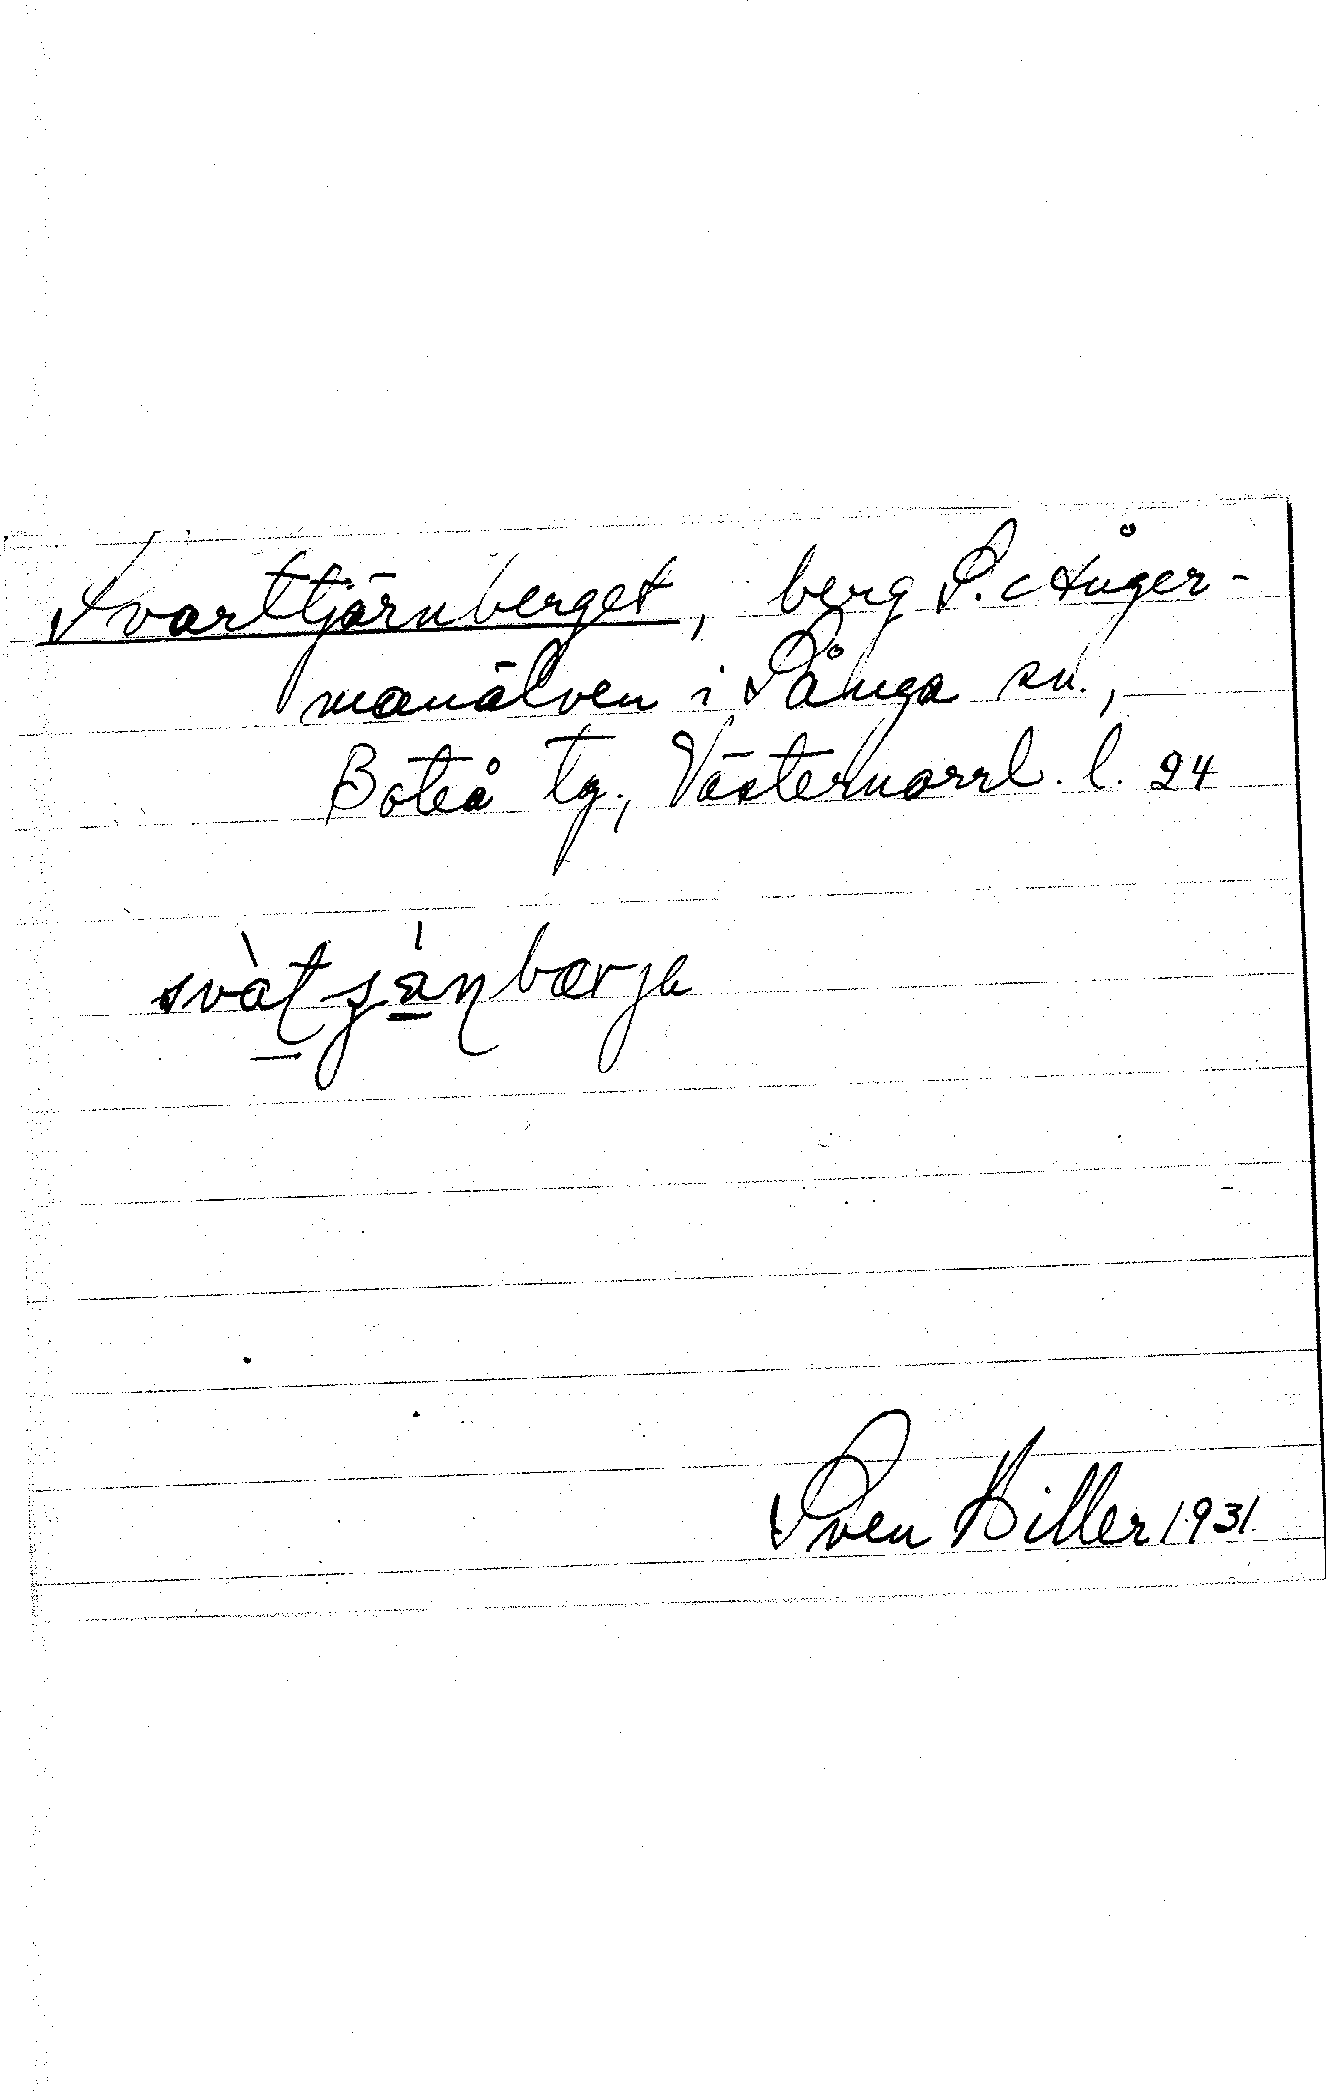 Svarttjärnberget, berg S. Ånger-
manälven i Sånga sn.,
Boteå tg., Västernorrl. l. 24
Sven Hiller 1931